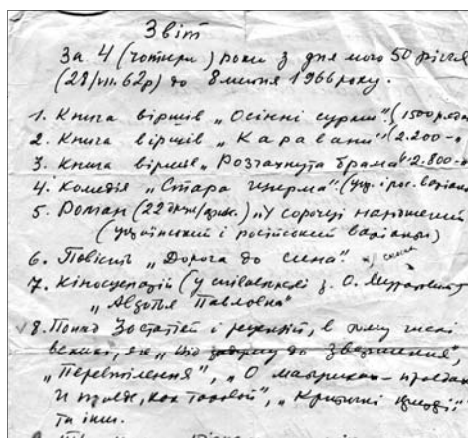 Звіт
За 4 (чотири) роки з дня мого 50 річчя
(28/VII. 62р) до 8 липня 1966 року.
1. Книга віршів „Осінні сурми" (1500 рядк
2. Книга віршів „Каравани" (2.200 – „
3. Книга віршів „Розчахнута брама" 2.800 – „
4. Комедія „Стара шкарма" (укр. і рос. варіан
5. Роман (22 друк/арк.) „У сорочці народжений
(український і російський варіанти)
6. Повість „Дорога до сина"
7. Кіносценарій (у співавторстві з О.
„Авдотья Павловна"
8. Понад 30 статтей і рецензій, в тому числі
великі, як „Від задуму до звершення",
„Перевтілення", „О
и правде, как таковой", „Критичні
та інш.